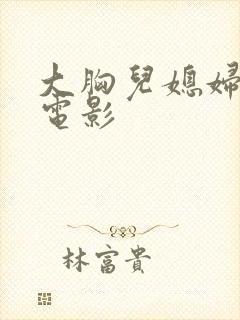 大胸兒媳婦
電影
林富貴